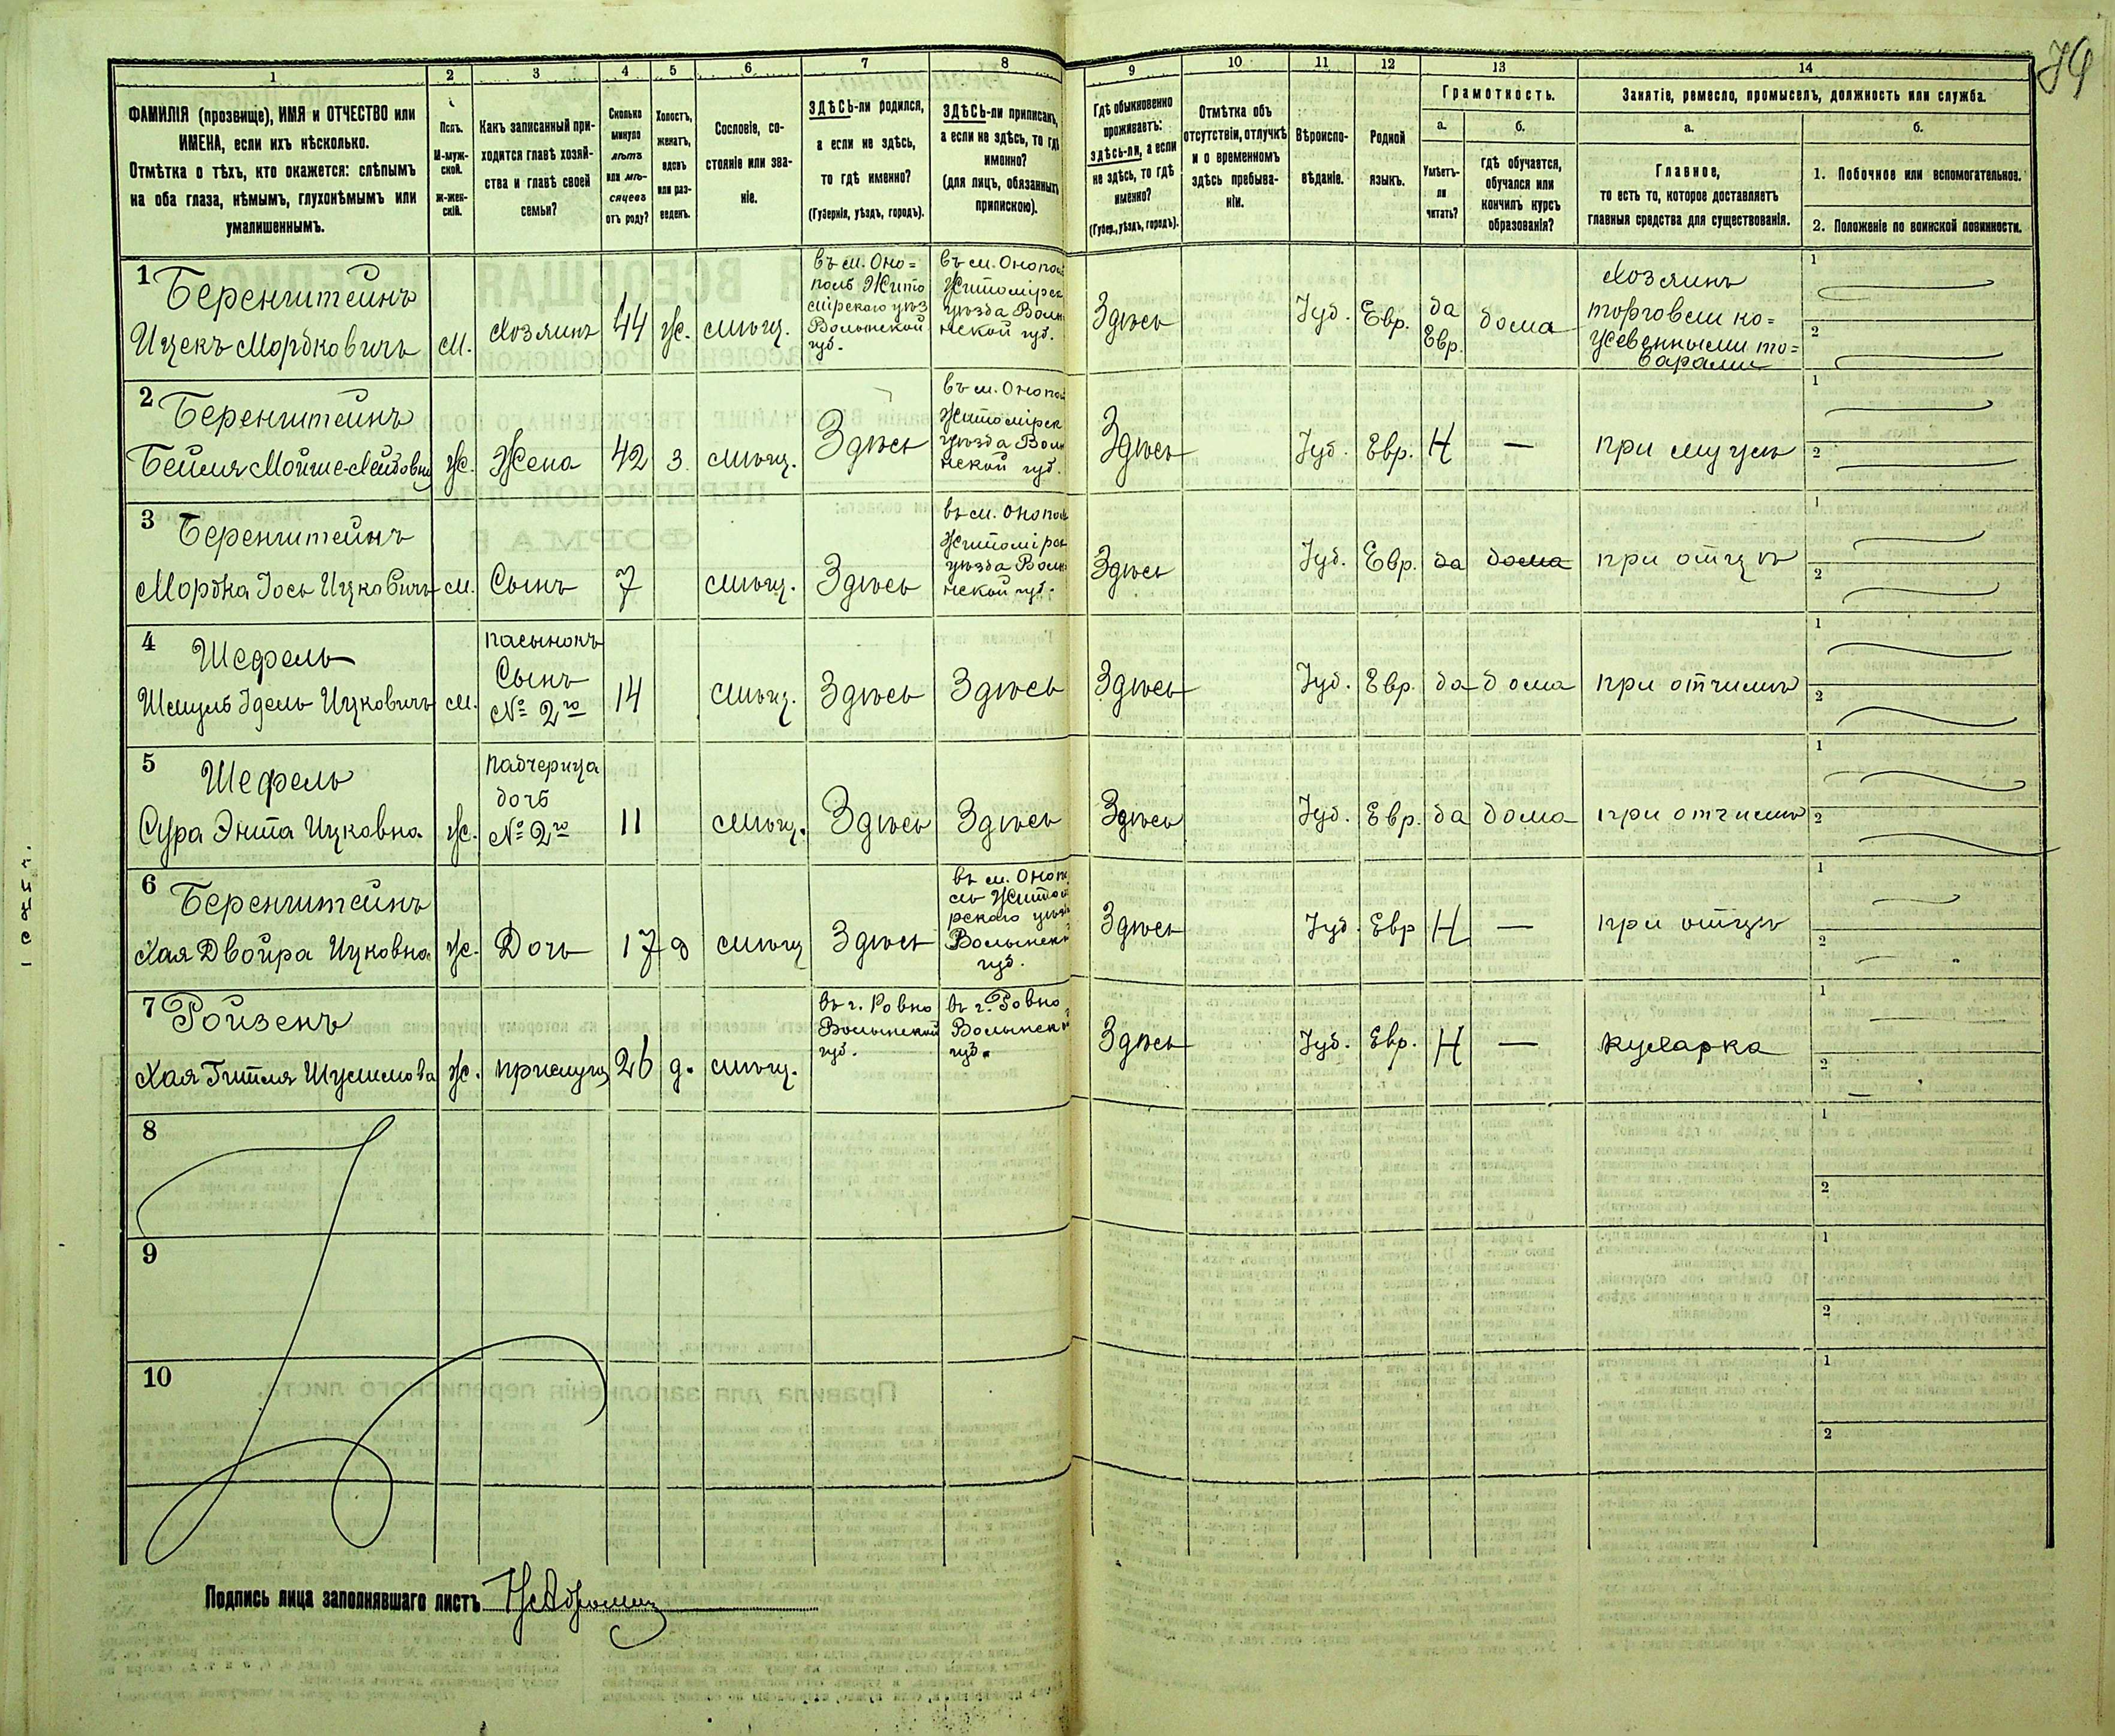 79
1
2
3
4
5
6
7
8
9
10
11
12
13
14
ФАМИЛІЯ (прозвище), ИМЯ и ОТЧЕСТВО или
ИМЕНА, если ихъ нѣсколько.
Отмѣтка о тѣхъ, кто окажется: слѣпымъ
на оба глаза, нѣмымъ, глухонѣмымъ или
умалишеннымъ.
Полъ.
М-муж-
ской.
ж-жен-
скій.
Какъ записанный при-
ходится главѣ хозяй-
ства и главѣ своей
семьи?
Сколько
минуло
лѣтъ
или мѣ-
сяцевъ
отъ роду?
Холостъ,
женатъ,
вдовъ
или раз-
веденъ.
Сословіе, со-
стояніе или зва-
ніе.
ЗДѢСЬ-ли родился,
а если не здѣсь,
то гдѣ именно?
(Губернія, уѣздъ, городъ).
ЗДѢСЬ-ли приписанъ,
а если не здѣсь, то гдѣ
именно?
(для лицъ, обязанныхъ
припискою).
Гдѣ обыкновенно
проживаетъ:
здѣсь-ли, а если
не здѣсь, то гдѣ
именно?
(Губер., уѣздъ, городъ).
Отмѣтка объ
отсутствіи, отлучкѣ
и о временномъ
здѣсь пребыва-
ніи.
Вѣроиспо-
вѣданіе.
Родной
языкъ.
Грамотность.
а.
Умѣетъ-
ли
читать?
б.
гдѣ обучается,
обучался или
кончилъ курсъ
образованія?
Занятіе, ремесло, промыселъ, должность или служба.
а.
Главное,
то есть то, которое доставляетъ
главныя средства для существованія.
б.
1. Побочное или вспомогательное.
2. Положеніе по воинской повинности.
1
Беренштейнъ
Ицекъ Мордковичъ
м.
Хозяинъ
44
ж.
мѣщ.
въ м. Оно=
поль Жито
мірскаго уѣз
Волынской
губ.
въ м. Онополь
Житомірск
уѣзда Волы
нской губ.
Здѣсь
Іуд.
Евр.
да
Евр.
дома
Хозяинъ
торговли ко=
жевенными то=
варами
1
2
2
Беренштейнъ
Бейля Мойше-Лейбовна
ж.
Жена
42
з.
мѣщ.
Здѣсь
въ м. Онополь
Житомірск
уѣзда Волы
нской губ.
Здѣсь
Іуд.
Евр.
Н
—
при мужѣ
1
2
3
Беренштейнъ
Мордка Іось Ицковичъ
м.
Сынъ
7
мѣщ.
Здѣсь
въ м. Онополь
Житомірск
уѣзда Волы
нской губ.
Здѣсь
Іуд.
Евр.
да
дома
при отцѣ
1
2
4
Шефель
Шмуль Идель Ицковичъ
м.
пасынокъ
Сынъ
№ 2го
14
мѣщ.
Здѣсь
Здѣсь
Здѣсь
Іуд.
Евр.
да
дома
при отчимѣ
1
2
5
Шефель
Сура Энта Ицковна
ж.
падчерица
дочь
№ 2го
11
мѣщ.
Здѣсь
Здѣсь
Здѣсь
Іуд.
Евр.
да
дома
при отчимѣ
1
2
6
Беренштейнъ
Хая Двойра Ицковна
ж.
Дочь
17
д
мѣщ
Здѣсь
въ м. Оноп
ль Житом
рскаго уѣзд
Волынск
губ.
Здѣсь
Іуд.
Евр
Н
—
при отцѣ
1
2
7
Ройзенъ
Хая Гитля
ж.
прислуга
26
д.
мѣщ.
въ г. Ровно
Волынской
губ.
въ г. Ровно
Волынск
губ.
Здѣсь
Іуд.
Евр.
Н
—
кухарка
1
2
8
1
2
9
1
2
10
1
2
Подпись лица заполнявшаго листъ